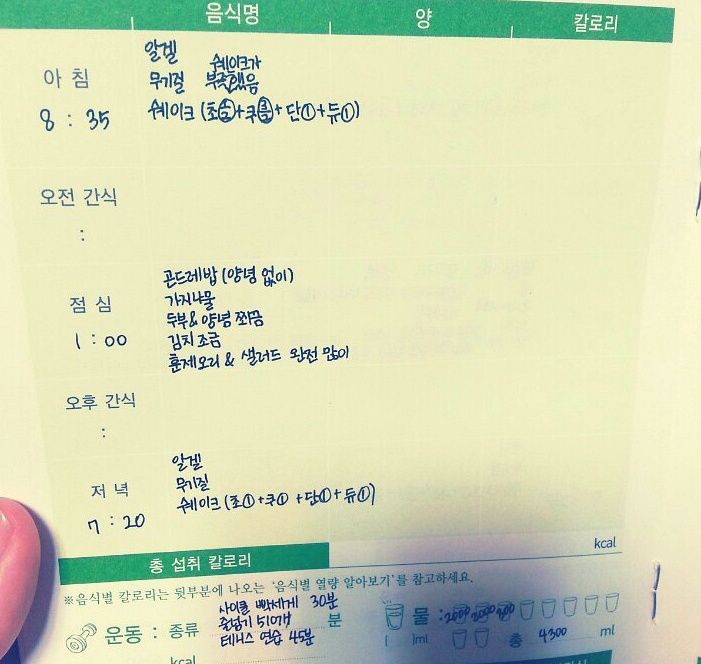 음식명 양 칼로리
아침
8 : 35
알겔
무기질
쉐이크가
부족했음
쉐이크 (초+쿠+단①+듀①)
오전 간식
:
점심
1 : 00
곤드레밥 (양념 없이)
가지나물
두부 & 양념 쪼끔
김치 조금
훈제오리 & 샐러드 완전 많이
오후 간식
:
저녁
7 : 20
알겔
무기질
쉐이크 (초①+쿠①+단①+듀①)
총 섭취 칼로리 kcal
※음식별 칼로리는 뒷부분에 나오는 '음식별 열량 알아보기'를 참고하세요.
운동 : 종류
사이클 빡세게 30분
줄넘기 510개
테니스 연습 45분
분
kcal
물 :
( )ml
총 4300 ml